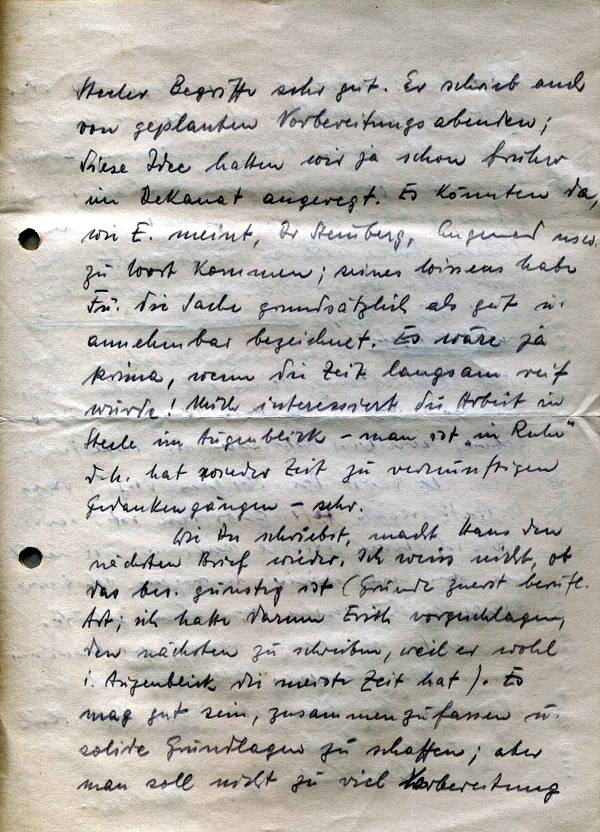 Steeler Begriffe sehr gut. Er schrieb auch
von geplanten Vorbereitungsabenden;
diese Idee hatten wir ja schon früher
im Dekanat angeregt. Es könnten da,
wie E. meint, Dr Sternberg, usw.
zu Wort kommen; seines Wissens habe
Fu. die Sache grundsätzlich als gut u.
annehmbar bezeichnet. Es wäre ja
prima, wenn die Zeit langsam reif
würde! Mich interessiert die Arbeit in
Steele im Augenblick – man ist „in Ruhe"
d.h. hat Zeit zu vernünftigen
Gedankengängen – sehr.
Wie Du schriebst, macht Hans den
nächsten Brief wieder. Ich weiss nicht, ob
das bes. günstig ist (Gründe zuerst berufl.
Art; ich hatte darum Erich vorgeschlagen,
den nächsten zu schreiben, weil er wohl
i. Augenblick die meiste Zeit hat). Es
mag gut sein, zusammenzufassen u.
solide Grundlagen zu schaffen; aber
man soll nicht zu viel Vorbereitung